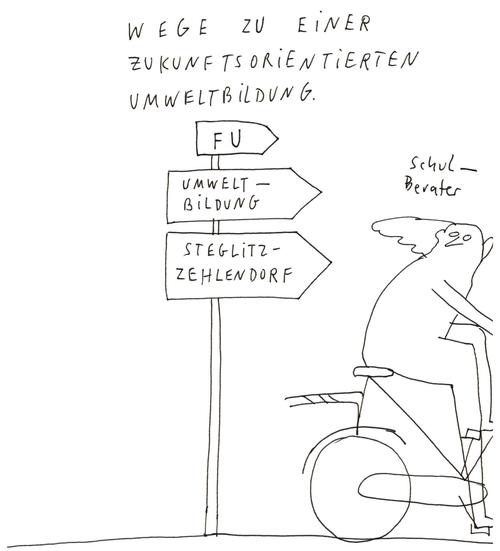 WEGE ZU EINER
ZUKUNFTSORIENTIERTEN
UMWELTBILDUNG.
FU
UMWELT-
BILDUNG
STEGLITZ-
ZEHLENDORF
Schul-
Berater